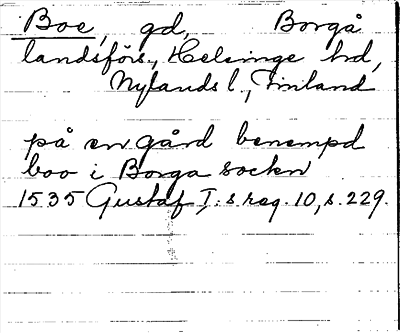 Boe, gd, Borgå
landsförs., Helsinge hd,
Nylands l., Finland
på en gård benempd
boo i Borga socken
1535 Gustaf I:s reg. 10, s. 229.